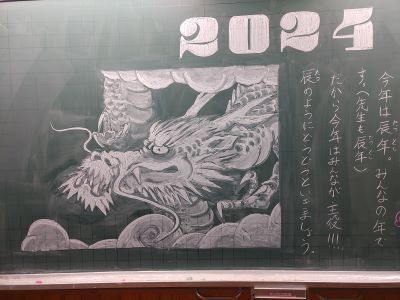 2024
今年は辰年。みんなの年で
す。(先生も辰年)
だから今年はみんなが主役!!!
辰のようにどうどうといきましょう。